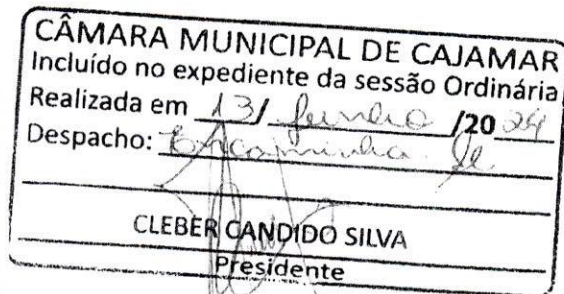 CÂMARA MUNICIPAL DE CAJAMAR
Incluído no expediente da sessão Ordinária
Realizada em 13/ junho /20 24
Despacho: Encaminha-se
CLEBER CANDIDO SILVA
Presidente